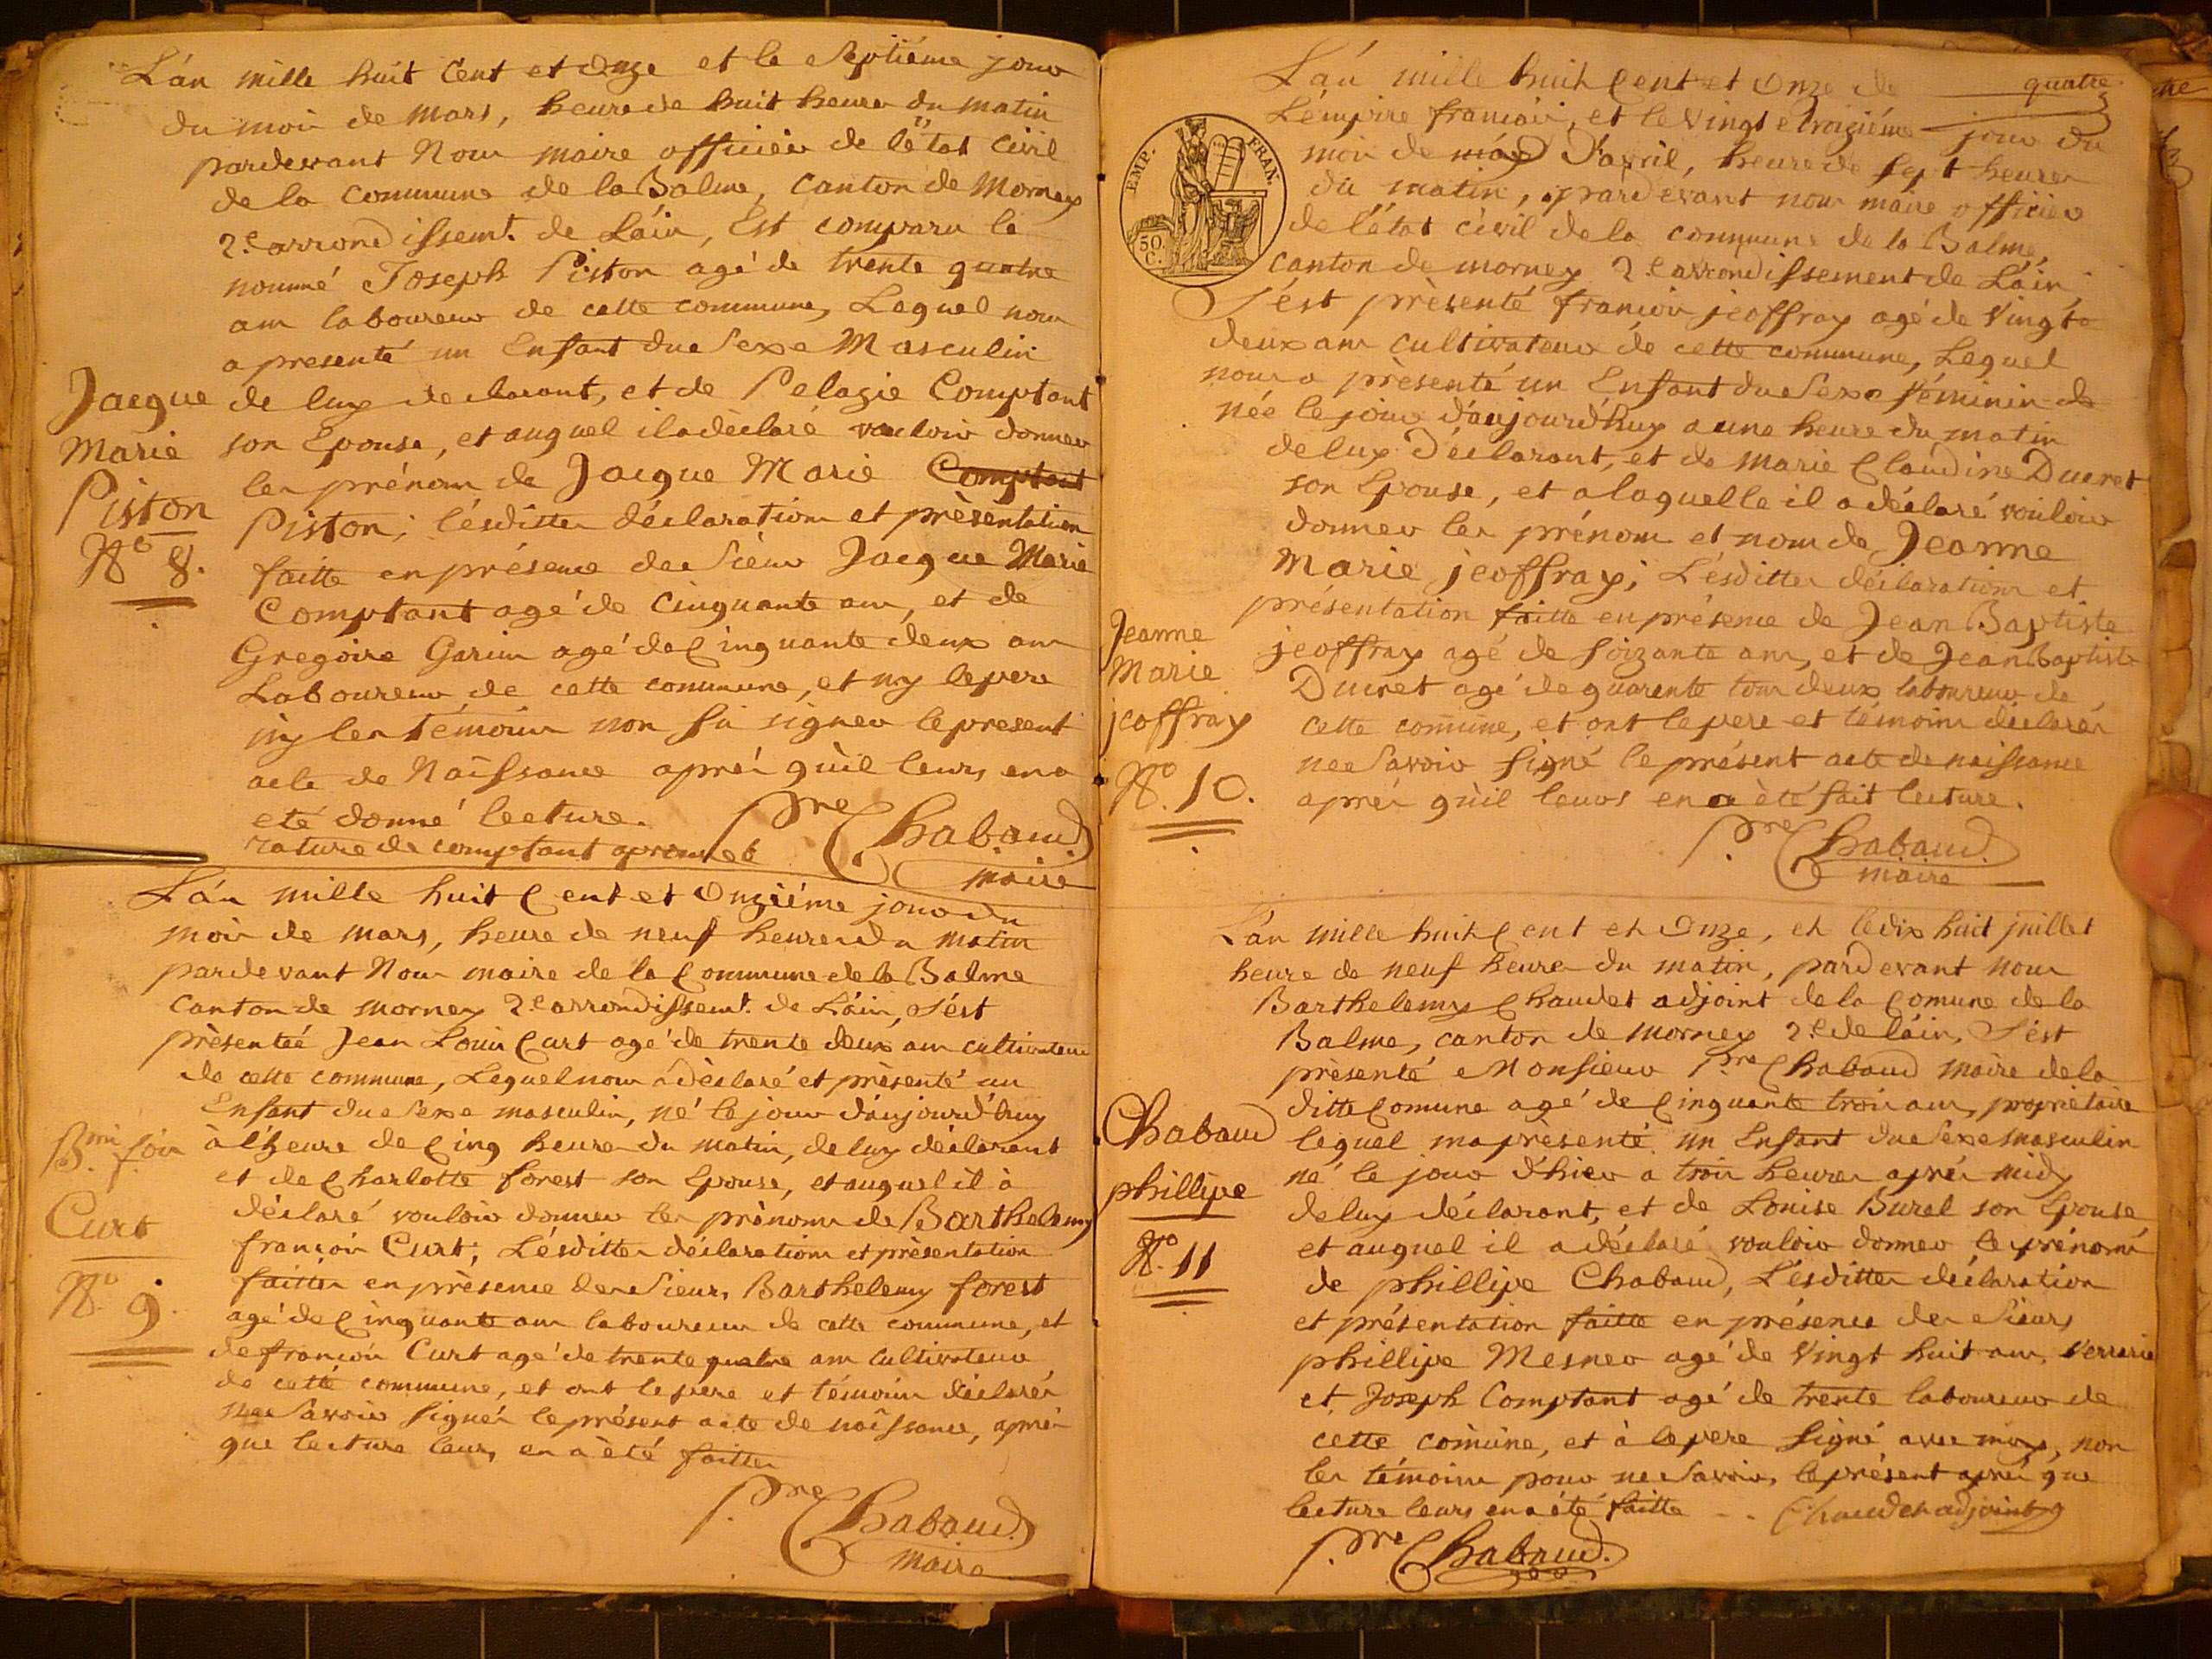 L'án mille huit Cent et Onze et le Septiéme jour
du mois de mars, heure de huit heures du matin
pardevant Nous maire officier de l'état civil
de la Commune de la Balme, Canton de Mornay
2.e arrondissemt. de L'áin, Est comparu le
nommé Joseph Piston agé de trente quatre
ans laboureur de cette commune, Lequel nous
a presenté un Enfant du Sexe Masculin
de luy declarant, et de Pelagie Comptant
son Epouse, et auquel il a dèclaré vouloir donner
les prénoms de Jacque Marie Comptant
Piston; lésdittes déclarations et prèsentation
faitte en présence des Sieur Jacque Marie
Comptant agé de Cinquante ans, et de
Gregoire Garin agé de Cinquante deux ans
Laboureur de cette commune, et ny le pere
ny les témoins non sú signer le present
acte de Naissance aprés qùil leurs en a
eté donné lecture.
rature de comptant
Pre Chabaud
maire
Jacque
Marie
Piston
No 8.
L'án mille huit Cent et Onziéme jour du
mois de mars, heure de neuf heures du matin
pardevant Nous maire de la Commune de la Balme
Canton de mornay 2.e arrondissemt. de L'áin, S'ést
prèsenteé Jean Louis Curt agé de trente deux ans cultivateur
de cette commune, Lequel nous a dèclaré et prèsenté un
Enfant du Sexe masculin, né le jour d'aujourd'huy
à l'heure de Cinq heures du matin, de luy déclarant
et de Charlotte forest son Epouse, et auquel il à
déclaré vouloir donner les prènoms de Barthelemy
françois Curt; Lésdittes déclarations et prèsentation
faittes en prèsence des Sieurs Barthelemy forest
agé de Cinquante ans laboureur de cette commune, et
de françois Curt agé de trente quatre ans Cultivateur
de cette commune, et ont le pere et témoins déclarés
ne Savoir Signér le présent acte de naissance, aprés
que lecture leurs en a èté faittes
Pre Chabaud.
maire
Bmi. fois
Curt
No. 9.
L'án mille huit Cent et Onze de quatre
L'émpire francois, et le vingt e troiziéme jour du
mois de may D'avril, heure de Sept heures
du matin, pardevant nous maire officier
de l'état cívil de la commune de la Balme,
Canton de mornay 2.e arrondissement de L'áin,
S'ést prèsenté françois jeoffray agé de Vingt
deux ans Cultivateur de cette commune, Lequel
nous a prèsenté un Enfant du Sexe féminin
née le jour d'aujourd'huy a une heure du matin
de luy Déclarant, et de Marie Claudine Ducret
son Epouse, et a laquelle il a déclaré vouloir
donner les prénoms et nom de Jeanne
Marie jeoffray; L'ésdittes déclarations et
présentation faitte en présence de Jean Baptiste
jeoffray agé de soizante ans, et de Jean Baptiste
Ducret agé de quarente tous deux laboureur de
cette comũne, et ont le pere et témoins déclarés
ne Savoir Signé le présent acte de naissance
aprés qùil leurs en a èté fait lecture.
Pre Chabaud.
maire
EMP. FRAN.
50 C.
Jeanne
Marie
jeoffray
No. 10.
L'án mille huit Cent et Onze, et le dix huit juillet
heure de neuf heures du matin, pardevant nous
Barthelemy Chaudet adjoint de la Comune de la
Balme, canton de mornay 2.e de l'áin, S'ést
prèsenté Monsieur Pre Chabaud maire de la
ditte Comune agé de Cinquante trois ans, propriétaire
lequel ma prèsenté un Enfant du Sexe masculin
né le jour d'hier a trois heures aprés midy
de luy déclarant, et de Louise Burel son Epouse
et auquel il a déclaré vouloir donner le prénoms
de phillipe Chabaud, L'ésdittes déclaration
et présentation faitte en présence des Sieurs
phillipe Mesner agé de Vingt huit ans,
et Joseph Comptant agé de trente laboureur de
cette comũne, et à le pere Signé avec moy, non
les témoins pour ne Savoir, le présent aprés que
lecture leurs en a été faitte -- Chaudet adjoint
Pre Chabaud.
Chabaud
phillipe
No. 11